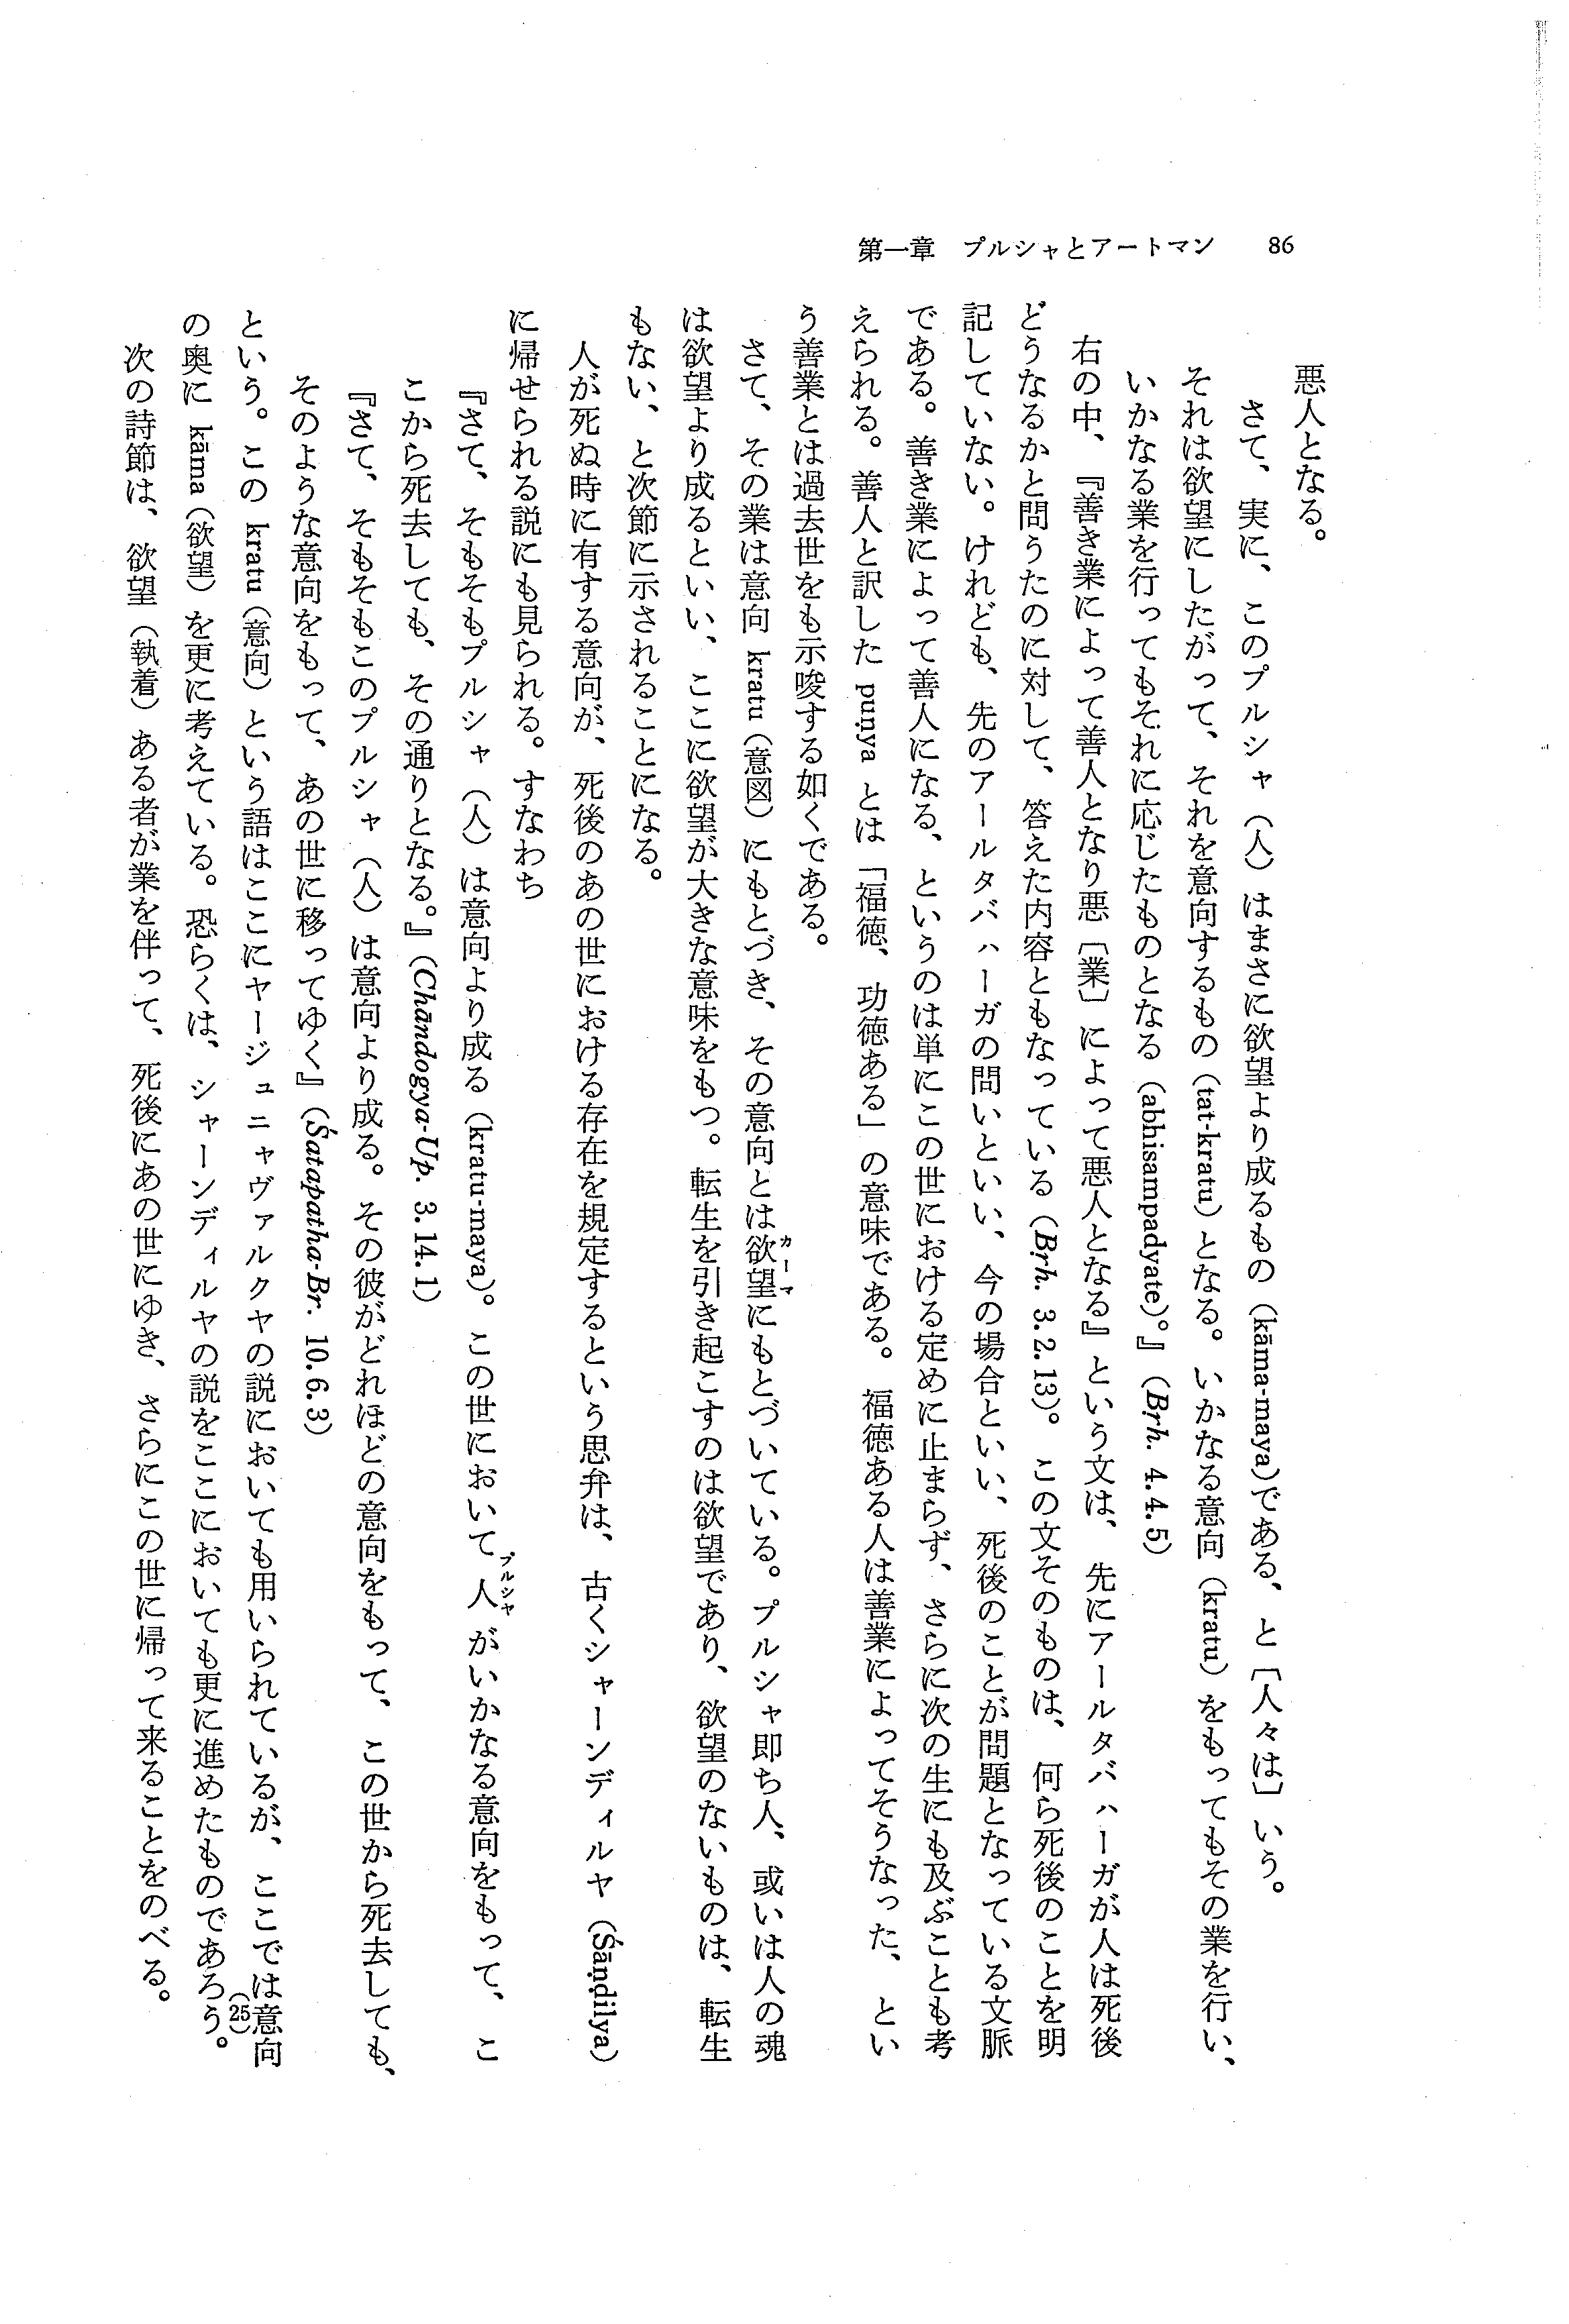 第一章　プルシャとアートマン　86
悪人となる。
さて、実に、このプルシャ（人）はまさに欲望より成るもの（kāma-maya）である、と〔人々は〕いう。
それは欲望にしたがって、それを意向するもの（tat-kratu）となる。いかなる意向（kratu）をもってもその業を行い、
いかなる業を行ってもそれに応じたものとなる（abhisampadyate）。』（Bṛh. 4.4.5）
右の中、『善き業によって善人となり悪〔業〕によって悪人となる』という文は、先にアールタバハーガが人は死後
どうなるかと問うたのに対して、答えた内容ともなっている（Bṛh. 3.2.13）。この文そのものは、何ら死後のことを明
記していない。けれども、先のアールタバハーガの問いといい、今の場合といい、死後のことが問題となっている文脈
である。善き業によって善人になる、というのは単にこの世における定めに止まらず、さらに次の生にも及ぶことも考
えられる。善人と訳した puṇya とは「福徳、功徳ある」の意味である。福徳ある人は善業によってそうなった、とい
う善業とは過去世をも示唆する如くである。
さて、その業は意向 kratu（意図）にもとづき、その意向とは欲望カーマにもとづいている。プルシャ即ち人、或いは人の魂
は欲望より成るといい、ここに欲望が大きな意味をもつ。転生を引き起こすのは欲望であり、欲望のないものは、転生
もない、と次節に示されることになる。
人が死ぬ時に有する意向が、死後のあの世における存在を規定するという思弁は、古くシャーンディルヤ（Śāṇḍilya）
に帰せられる説にも見られる。すなわち
『さて、そもそもプルシャ（人）は意向より成る（kratu-maya）。この世において人プルシャがいかなる意向をもって、こ
こから死去しても、その通りとなる。』（Chāndogya-Up. 3.14.1）
『さて、そもそもこのプルシャ（人）は意向より成る。その彼がどれほどの意向をもって、この世から死去しても、
そのような意向をもって、あの世に移ってゆく』（Śatapatha-Br. 10.6.3）
という。この kratu（意向）という語はここにヤージュニャヴァルクヤの説においても用いられているが、ここでは意向
の奥に kāma（欲望）を更に考えている。恐らくは、シャーンディルヤの説をここにおいても更に進めたものであろう。(25)
次の詩節は、欲望（執着）ある者が業を伴って、死後にあの世にゆき、さらにこの世に帰って来ることをのべる。